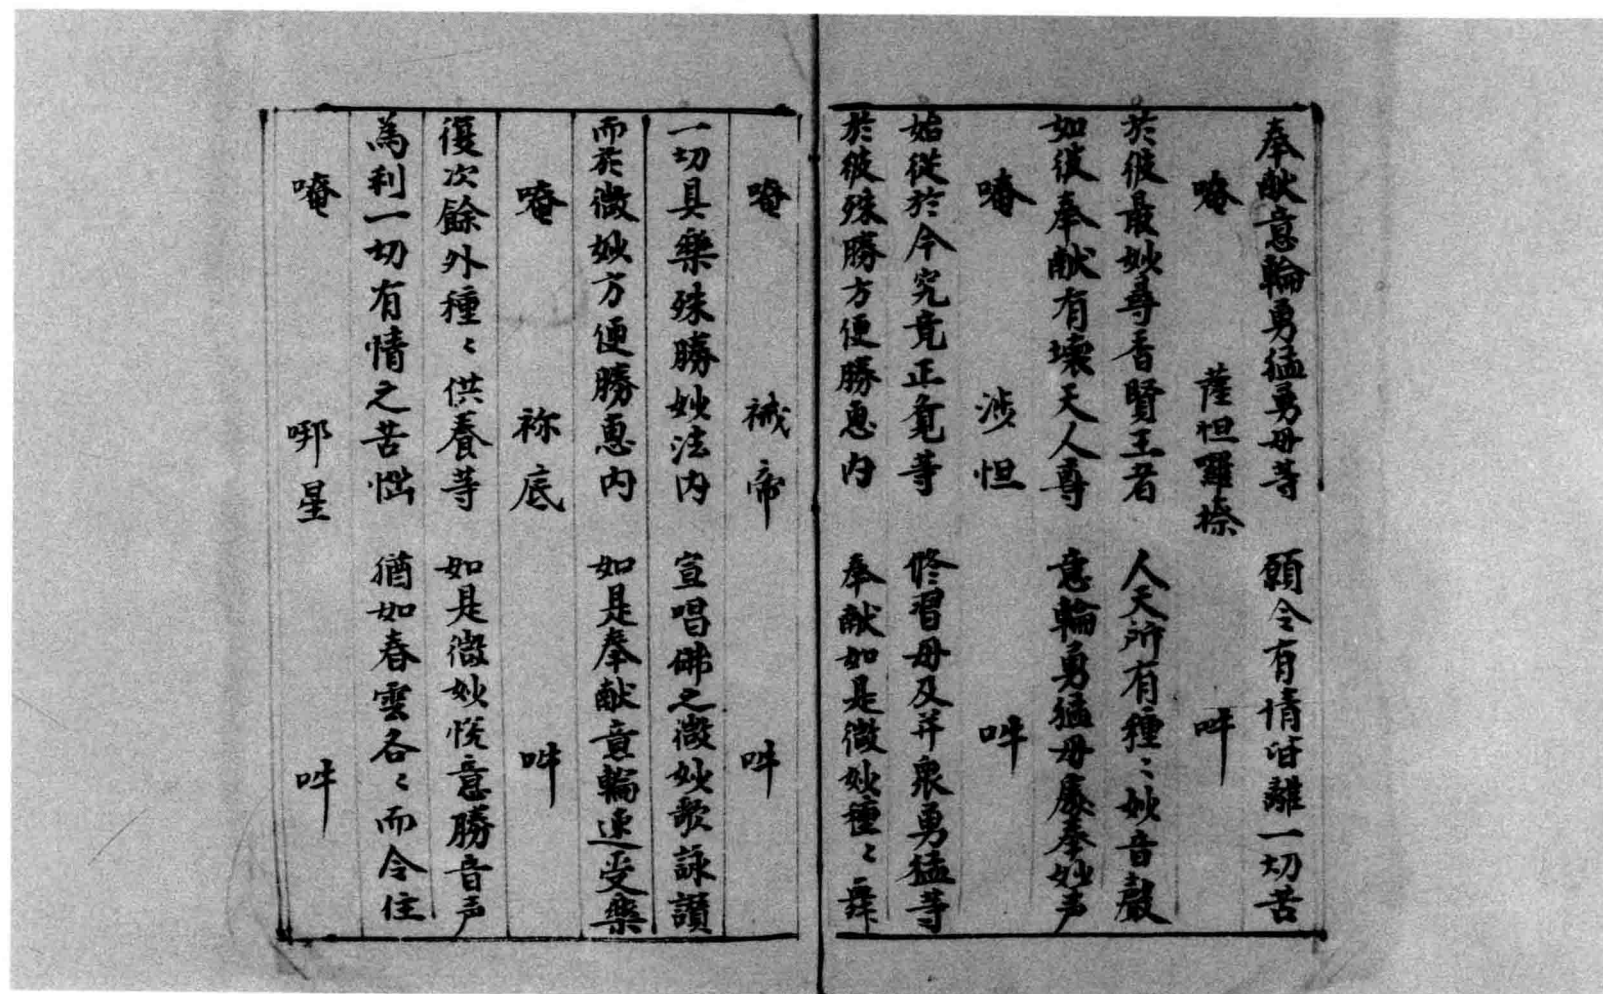 奉献意輪勇猛勇母等 願令有情皆離一切苦
唵 薩怛囉捺 吽
於彼最妙尋香賢王者 人天所有種〻妙音聲
如彼奉献有壞天人尊 意輪勇猛母處奉妙声
唵 涉怛 吽
始從於今究竟正覔等 修習母及并衆勇猛等
於彼殊勝方便勝惠内 奉献如是微妙種〻舞
唵 帝 吽
一切具樂殊勝妙法内 宣唱佛之微妙歌詠讃
而於微妙方便勝惠内 如是奉献意輪速受樂
唵 祢底 吽
復次餘外種〻供養等 如是微妙悦意勝音声
為利一切有情之苦惱 猶如春雲各〻而令住
唵 哪星 吽